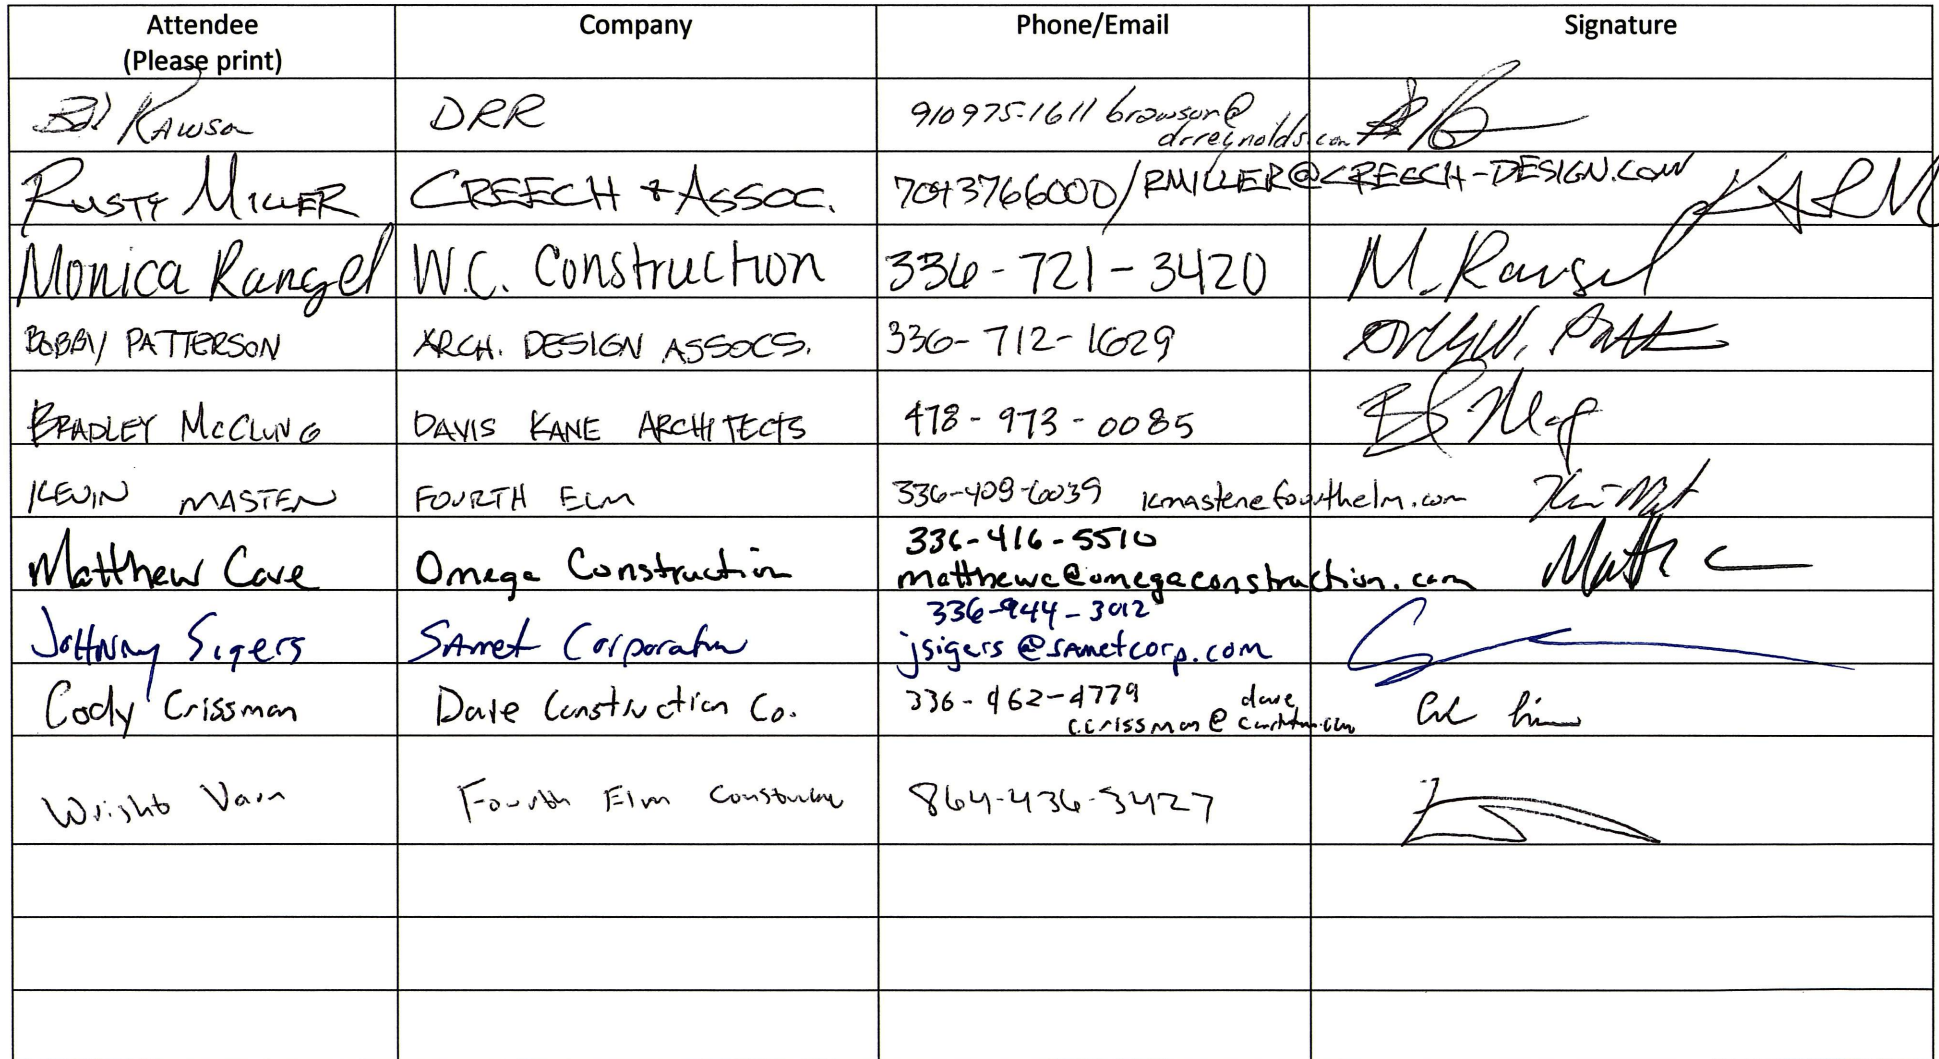 Attendee Company Phone/Email Signature
(Please print)
Bob Rawson DRR 910 975-1611 browson@
drreynolds.com
RUSTY MILLER CREECH & ASSOC. 7043766000/RMILLER@CREECH-DESIGN.COM
Monica Rangel W.C. Construction 336-721-3420 M. Rangel
BOBBY PATTERSON ARCH. DESIGN ASSOCS. 336-712-1629
BRADLEY McCLUNG DAVIS KANE ARCHITECTS 478-973-0085
KEVIN MASTEN FOURTH ELM 336-409-6039 kmasten@fourthelm.com
336-416-5510
Matthew Cave Omega Construction matthewc@omegaconstruction.com
336-944-3012
JoHNNy Sigers SAmet Corporation jsigers@sametcorp.com
Cody Crissman Dave Construction Co. 336-462-4779 dave
ccrissman@
Wright Varn Fourth Elm Construction 864-436-3427